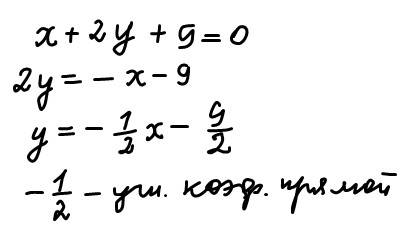 x + 2y + 9 = 0
2y = - x - 9
y = - 1/2 x - 9/2
- 1/2 - уги. коэф. прямой